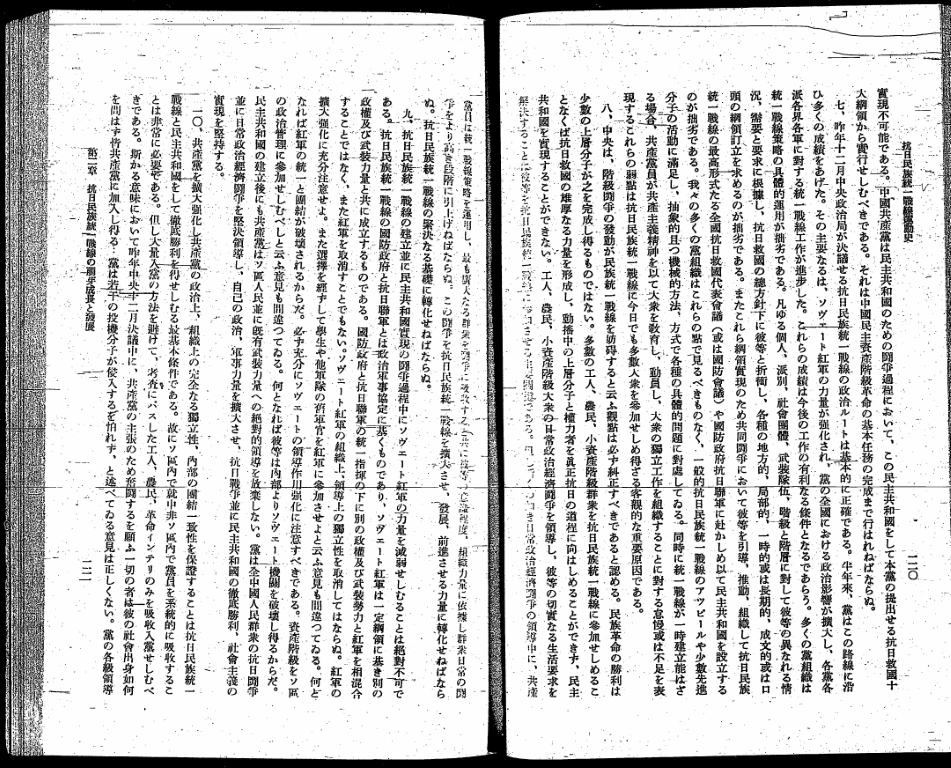 抗日民族統一戰線運動史
二一〇
實現不可能である。中國共產黨は民主共和國のための鬪爭過程において、この民主共和國をして本黨の提出せる抗日救國十
大綱領から實行せしむべきである。それは中國民主資產階級革命の基本任務の完成まで行はれねばならぬ。
七、昨年十二月中央政治局が決議せる抗日民族統一戰線の政治ルートは基本的に正確である。半年來、黨はこの路線に沿
ひ多くの成績をあげた。その主要なるは、ソヴェート紅軍の力量が强化され、黨の全國における政治影響が擴大し、各黨各
派各界各軍に對する統一戰線工作が進步した。これらの成績は今後の工作の有利なる條件となるであらう。多くの黨組織は
統一戰線策略の具體的運用が拙劣である。凡ゆる個人、派別、社會團體、武裝隊伍、階級と階層に對して彼等の異なれる情
況、需要と要求に根據し、抗日救國の總方針下に彼等と折衝し、各種の地方的、局部的、一時的或は長期的、成文的或は口
頭の綱領訂立を求めるのが拙劣である。またこれら綱領實現のため共同鬪爭において彼等を引導、推動、組織して抗日民族
統一戰線の最高形式たる全國抗日救國代表會議(或は國防會議)や國防政府抗日聯軍に赴かしめ以て民主共和國を設立する
のが拙劣である。我々の多くの黨組織はこれらの點で見るべきものなく、一般的抗日民族統一戰線のアッピールや少數先進
分子の活動に滿足し、抽象的且つ機械的方法、方式で各種の具體的問題に對處してゐる。同時に統一戰線が一時建立能はざ
る場合、共產黨員が共產主義精神を以て大衆を敎育し、動員し、大衆の獨立工作を組織することに對する怠慢或は不足を表
現するこれらの弱點は抗日民族統一戰線に今日でも多數人衆を參加せしめ得ざる客觀的な重要原因である。
八、中央は、階級鬪爭の發動が民族統一戰線を妨碍すると云ふ觀點は必ず糾正すべきであると認める。民族革命の勝利は
少數の上層分子が之を完成し得るものではない。多數の工人、農民、小資產階級群衆を抗日民族統一戰線に參加せしめるこ
となくば抗日救國の雄厚なる力量を形成し、動搖中の上層分子と權力者を眞正抗日の道程に向はしめることができず、民主
共和國を實現することができない。工人、農民、小資產階級大衆の日常政治經濟鬪爭を領導し、彼等の切實なる生活要求を
黨員は統一戰線策略を運用し、最も廣大なる群衆を
爭をより高き段階に引上げねばならぬ。この鬪爭を抗日民族統一戰線を擴大させ、發展、前進させる力量に轉化せねばなら
ぬ。抗日民族統一戰線の堅決なる基礎に轉化せねばならぬ。
九、抗日民族統一戰線の建立並に民主共和國實現の鬪爭過程中にソヴェート紅軍の力量を減弱せしむることは絕對不可で
ある。抗日民族統一戰線の國防政府と抗日聯軍とは政治軍事協定に基くものであり、ソヴェート紅軍は一定綱領に基き別の
政權及び武裝力量と共に成立するものである。國防政府と抗日聯軍の統一指揮の下に別の政權及び武裝勢力と紅軍を相混合
することではなく、また紅軍を取消すことでもない。ソヴェート紅軍の組織上、領導上の獨立性を取消してはならぬ。紅軍の
擴大强化に充分注意せよ。また選擇を經ずして學生や他軍隊の舊軍官を紅軍に參加させよと云ふ意見も間違つてゐる。何と
なれば紅軍の統一と團結が破壞されるからだ。必ず充分にソヴェートの領導作用强化に注意すべきである。資產階級をソ區
の政治管理に參加せしむべしと云ふ意見も間違つてゐる。何となれば彼等は內部よりソヴェート機關を破壞し得るからだ。
民主共和國の建立後にも共產黨はソ區人民並に既有武裝力量への絕對的領導を放棄しない。黨は全中國人民群衆の抗日鬪爭
並に日常政治經濟鬪爭を堅決領導し、自己の政治、軍事力量を擴大させ、抗日戰爭並に民主共和國の徹底勝利、社會主義の
實現を堅持する。
一〇、共產黨を擴大强化し共產黨の政治上、組織上の完全なる獨立性、內部の團結一致性を保證することは抗日民族統一
戰線と民主共和國をして徹底勝利を得せしむる最基本條件である。故にソ區內で就中非ソ區內で黨員を系統的に吸收するこ
とは非常に必要である。但し大量入黨の方法を避けて、考査にパスした工人、農民、革命インテリのみを吸收入黨せしむべ
きである。斯かる意味において昨年中央十二月決議中に、共產黨の主張のため奮鬪するを願ふ一切の者は彼の社會出身如何
を問はず皆共產黨に加入し得る、黨は若干の投機分子が侵入するを怕れず、と述べてゐる意見は正しくない。黨の各級領導
第二章 抗日民族統一戰線の